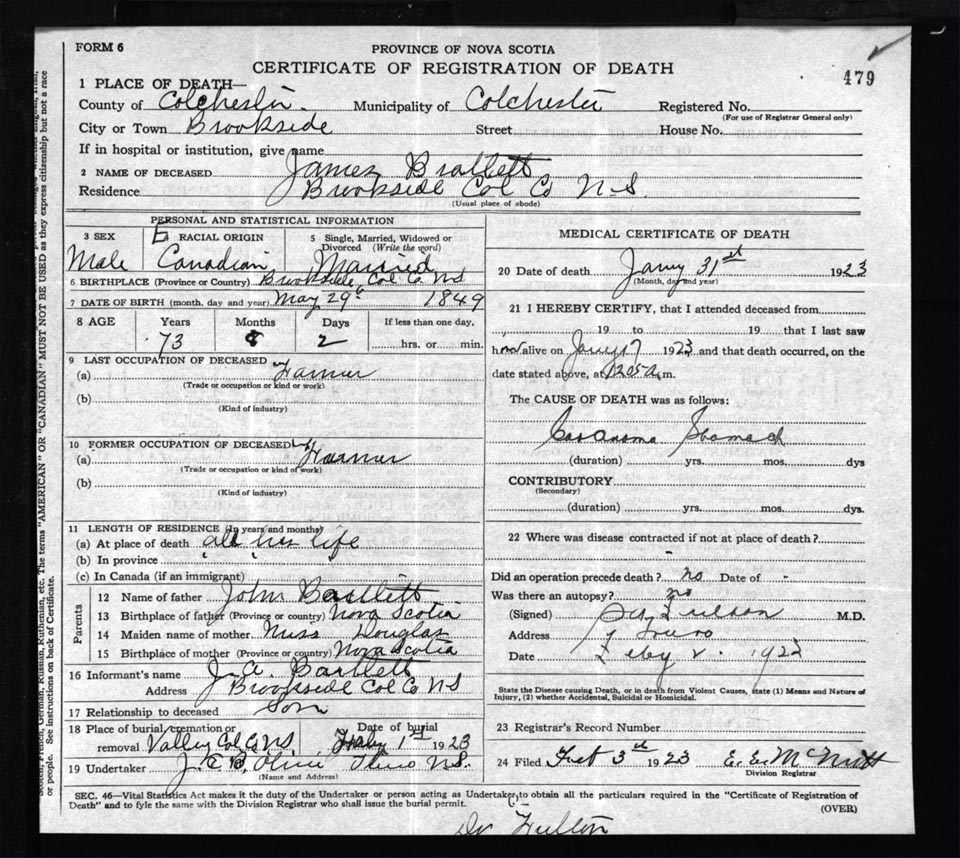 FORM 6
PROVINCE OF NOVA SCOTIA
CERTIFICATE OF REGISTRATION OF DEATH
479
1 PLACE OF DEATH—
County of Colchester. Municipality of Colchester Registered No.
(For use of Registrar General only)
City or Town Brookside Street House No.
If in hospital or institution, give name
2 NAME OF DECEASED James Bratlett
Residence Brookside Col Co N-S.
(Usual place of abode)
PERSONAL AND STATISTICAL INFORMATION
3 SEX E RACIAL ORIGIN 5 Single, Married, Widowed or Divorced (Write the word)
Male Canadian Married
6 BIRTHPLACE (Province or Country) Brookside, Col. Co. NS
7 DATE OF BIRTH (month, day and year) May 29th 1849
8 AGE Years Months Days If less than one day,
73 8 2 hrs. or min.
9 LAST OCCUPATION OF DECEASED
(a) Farmer
(Trade or occupation or kind or work)
(b)
(Kind of industry)
10 FORMER OCCUPATION OF DECEASED
(a) Farmer
(Trade or occupation or kind of work)
(b)
(Kind of industry)
11 LENGTH OF RESIDENCE (in years and months)
(a) At place of death all his life
(b) In province
(c) In Canada (if an immigrant)
Parents
12 Name of father John Bartlett
13 Birthplace of father (Province or country) Nova Scotia
14 Maiden name of mother Miss Douglas
15 Birthplace of mother (Province or country) Nova Scotia
16 Informant's name J. A. Bartlett
Address Brookside Col Co NS
17 Relationship to deceased Son
18 Place of burial, cremation or removal Valley Col Co NS. Date of burial Feby 1st 1923
19 Undertaker Truro N.S.
(Name and Address)
MEDICAL CERTIFICATE OF DEATH
20 Date of death Jany 31st 1923
(Month, day and year)
21 I HEREBY CERTIFY, that I attended deceased from
19 to 19 that I last saw
h alive on Jany 17 1923 and that death occurred, on the
date stated above, at 1205 A.m.
The CAUSE OF DEATH was as follows:
Carcinoma Stomach
(duration) yrs. mos. dys
CONTRIBUTORY
(Secondary)
(duration) yrs. mos. dys.
22 Where was disease contracted if not at place of death?
-
Did an operation precede death? no Date of -
Was there an autopsy? no
(Signed) Fulton M.D.
Address Truro
Date Feby 2. 1923
State the Disease causing Death, or in death from Violent Causes, state (1) Means and Nature of
Injury, (2) whether Accidental, Suicidal or Homicidal.
23 Registrar's Record Number
24 Filed Feb 3rd 1923 E. E. McNutt
Division Registrar
SEC. 46—Vital Statistics Act makes it the duty of the Undertaker or person acting as Undertaker, to obtain all the particulars required in the "Certificate of Registration of
Death" and to fyle the same with the Division Registrar who shall issue the burial permit.
(OVER)
Dr Fulton
French, German, Russian, Ruthenian, etc. The terms "AMERICAN" OR "CANADIAN" MUST NOT BE USED as they express citizenship but not a race
or people. See instructions on back of Certificate.